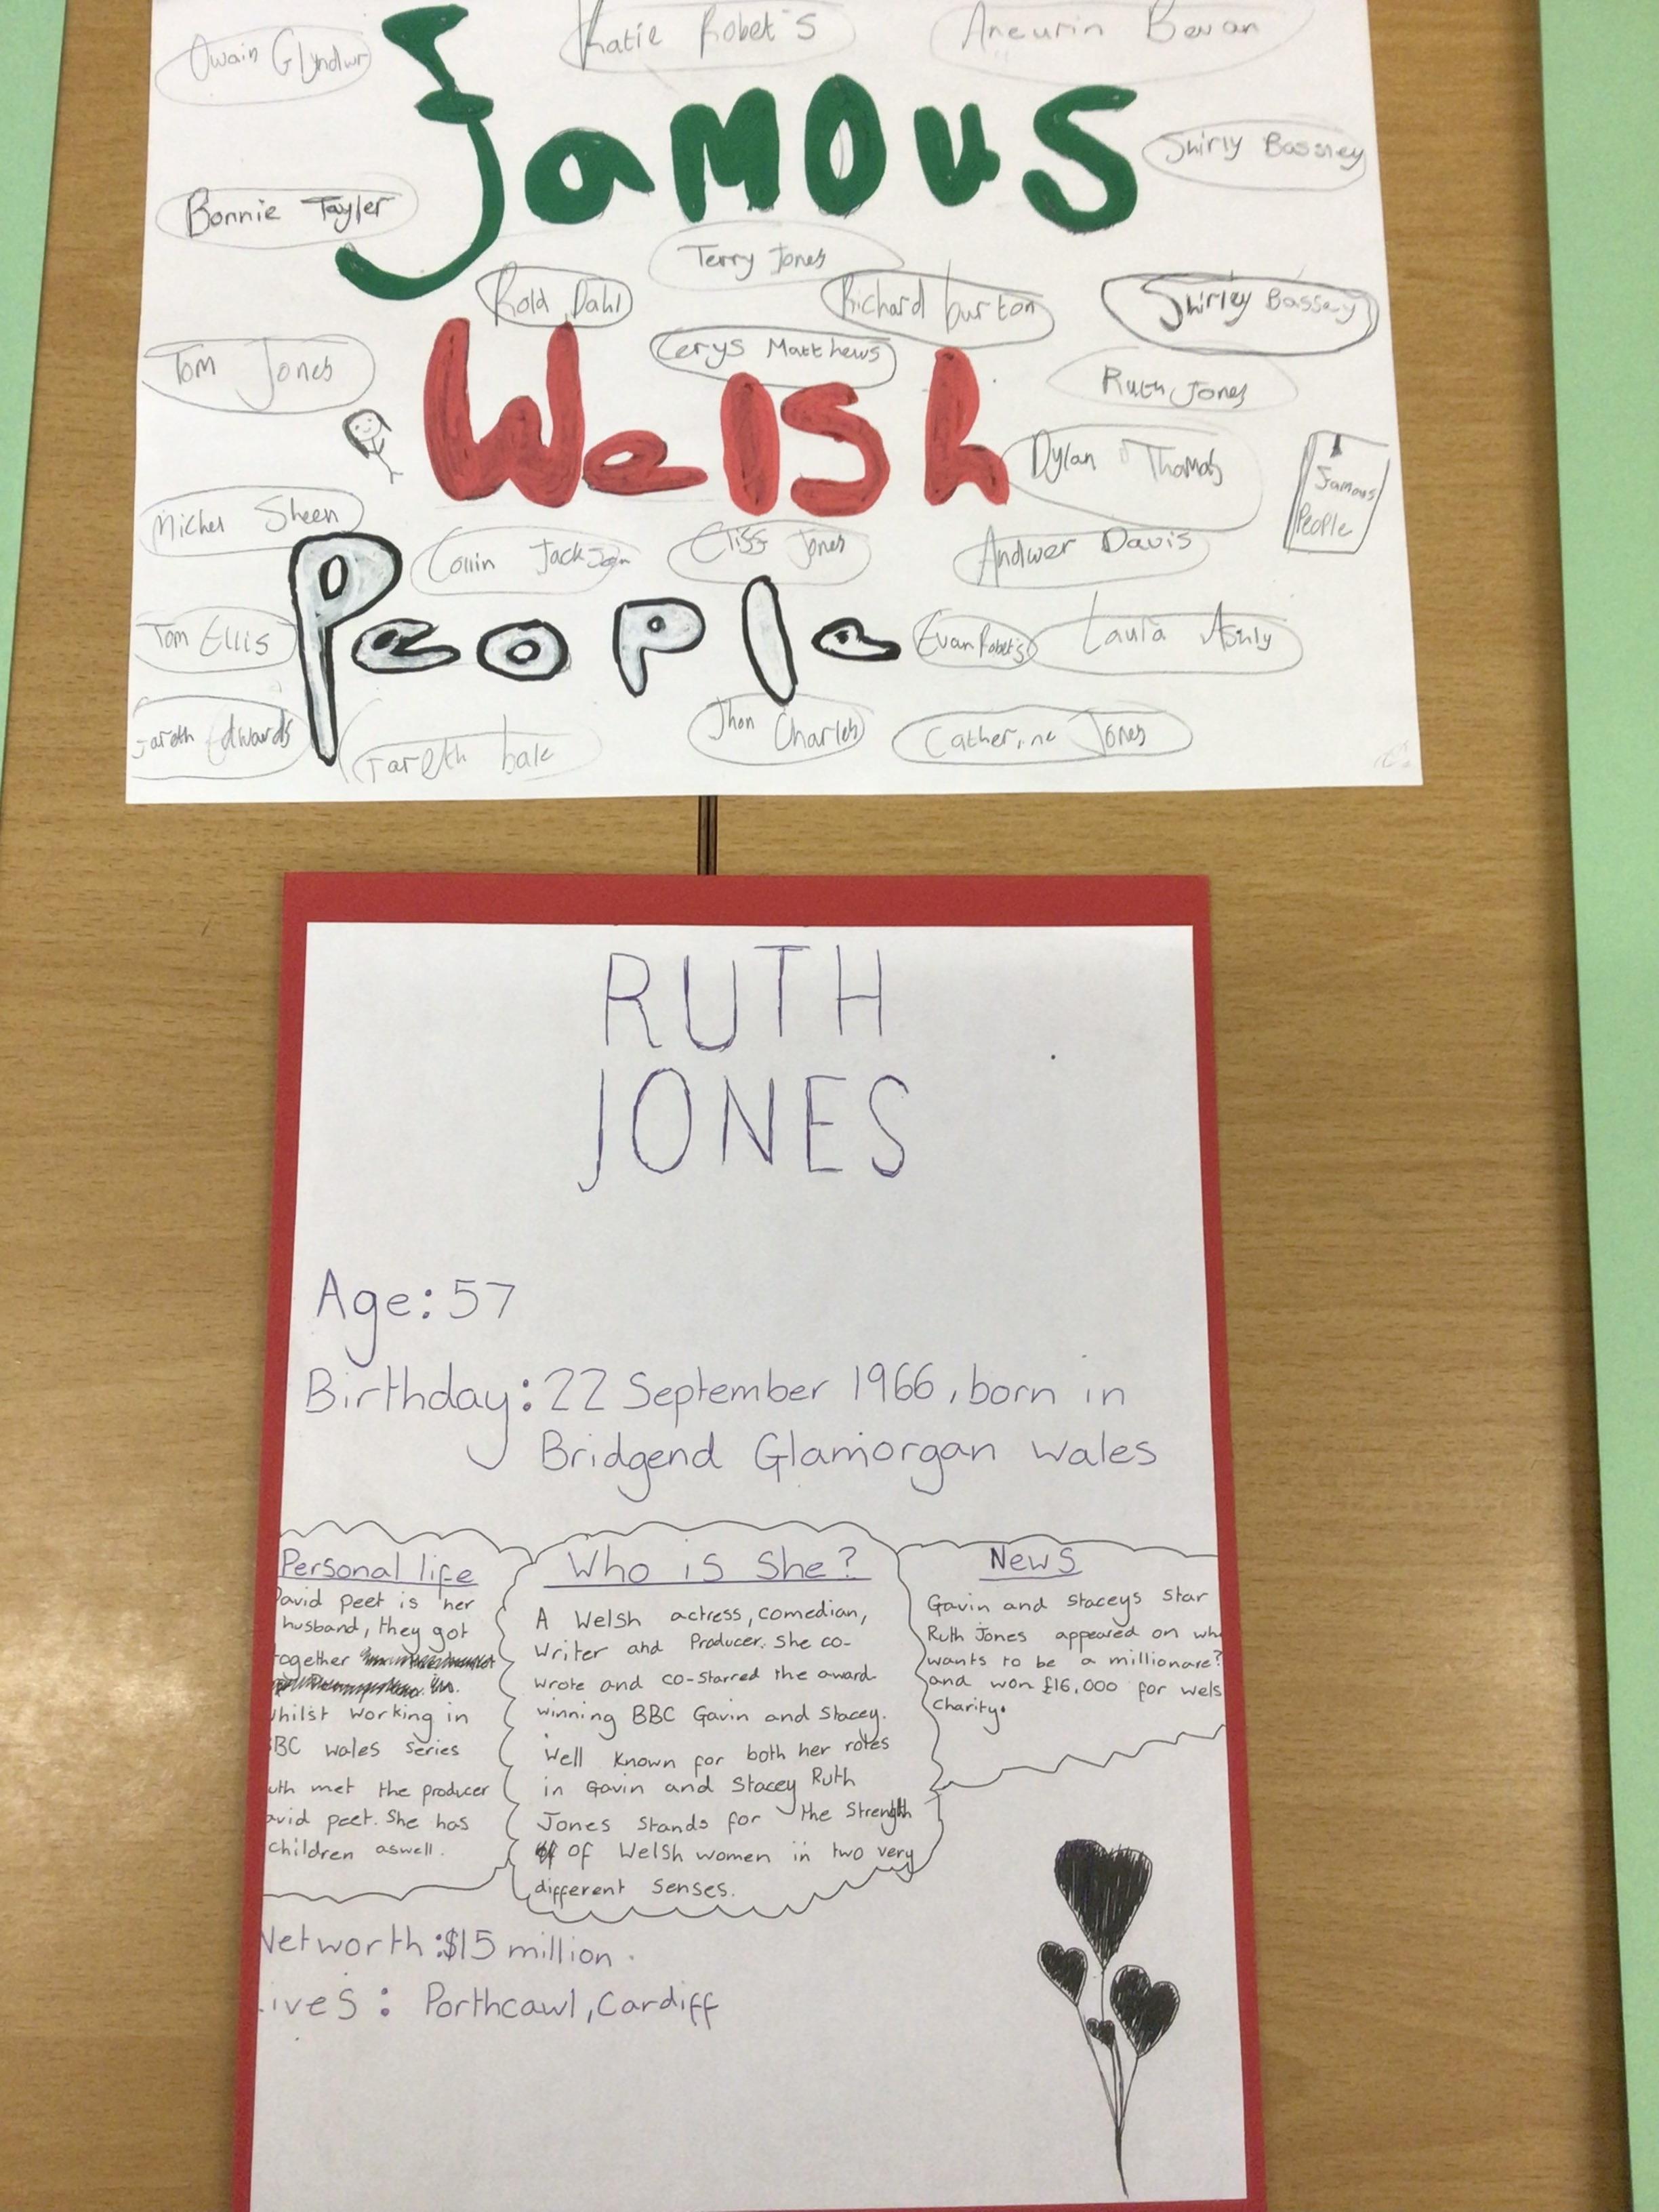 Owain Glyndwr
Katie Robet's
Aneurin Bevan
Famous
Shirly Bassney
Bonnie Tayler
Terry Jones
Rold Dahl
Richard burton
Shirley Bassey
Tom Jones
Cerys Matthews
Ruth Jones
Welsh
Dylan Thomas
Famous
People
Michel Sheen
Collin Jackson
Cliff Jones
Andwer Davis
People
Tom Ellis
Evan Robets
Laula Ashly
Gareth Edwards
Gareth bale
Jhon Charles
Catherine Jones
RUTH
JONES
Age: 57
Birthday: 22 September 1966, born in
Bridgend Glamorgan Wales
Personal life
David peet is her
husband, they got
together
whilst working in
BBC wales series
uth met the producer
avid peet. She has
children aswell.
Who is She?
A Welsh actress, comedian,
Writer and Producer. She co-
wrote and co-starred the award-
winning BBC Gavin and Stacey.
Well known for both her roles
in Gavin and Stacey Ruth
Jones stands for the Strength
of Welsh women in two very
different senses.
News
Gavin and Staceys Star
Ruth Jones appeared on wh
wants to be a millionare?
and won £16,000 for wels
Charity.
Networth: $15 million.
Lives: Porthcawl, Cardiff